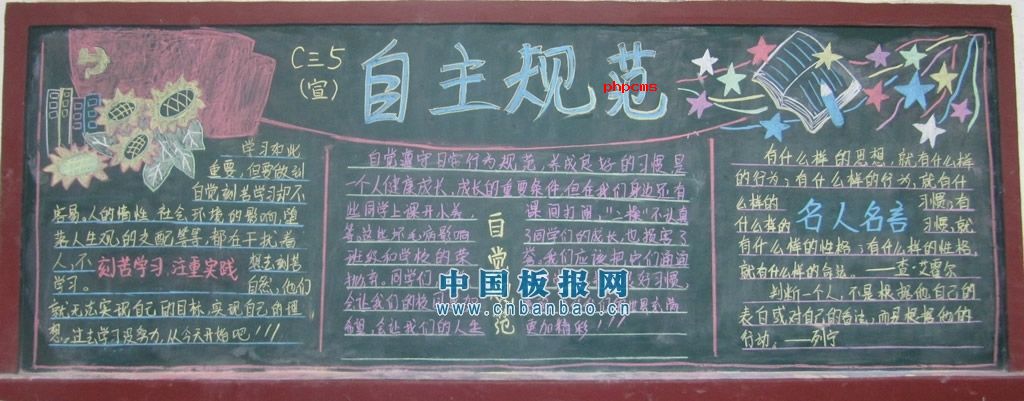 C三5
(宣)
自主规范
phpcms
学习如此
重要,但要做到
自觉刻苦学习却不
容易,人的惰性 社会环境的影响,堕
落人生观的支配等等,都在干扰着
人,不
刻苦学习,注重实践
想去刻苦
学习。
自然,他们
就无法实现自己的目标,实现自己的理
想。过去学习没努力,从今天开始吧!!!
自觉遵守日常行为规范,养成良好的习惯,是
一个人健康成长、成长的重要条件,但在我们身边还有
些同学上课开小差,
课间打闹,
不认真
等,这些坏毛病影响
了同学们的成长,也损害了
班级和学校的荣
誉,我们应该把它们通通
抛弃。同学们
好习惯,
会让我们的校园
希望,会让我们的人生
更加精彩!!!
自觉
范
有什么样的思想,就有什么样
的行为;有什么样的行为,就有什
么样的
习惯;有
什么样的
习惯,就
名人名言
有什么样的性格;有什么样的性格,
就有什么样的命运。——查·艾霍尔
判断一个人,不是根据他自己的
表白或对自己的看法,而是根据他的
行动。——列宁
中国板报网
www.cnbanbao.cn